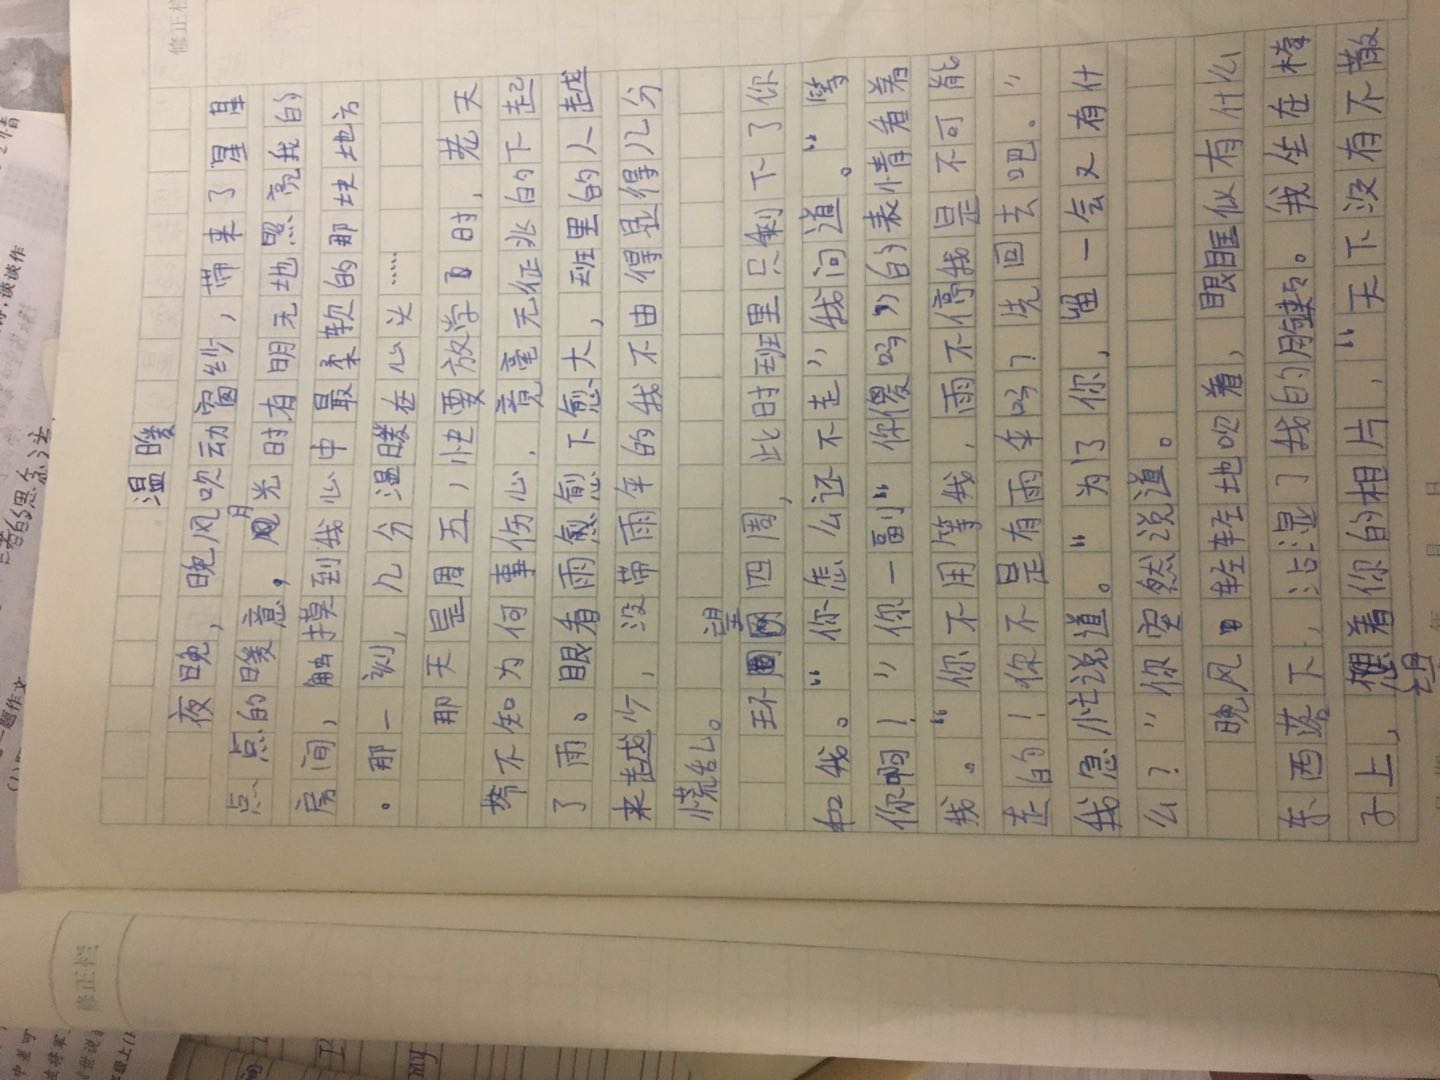 温暖
夜晚，晚风吹动窗纱，带来了星星
点点的暖意。月光时有明无地照亮我的
房间，触摸到我心中最柔软的那块地方
。那一刻，几分温暖在心头……
那天是周五，快要放学时，老天
爷不知为何事伤心，竟毫无征兆的下起
了雨。眼看雨愈愈下愈大，班里的人越
来越少，没带雨伞的我不由得显得几分
慌乱。
环望四周，此时班里只剩下了你
和我。“你怎么还不走”我问道。“等
你啊！”你一副“你傻吗”的表情看着
我。“你不用等我，雨不停我是不可能
走的！你不是有雨伞吗？先回去吧。”
我急忙说道。“为了你，留一会又有什
么？”你突然说道。
晚风轻轻地吹着，眼眶似有什么
东西落下，沾湿了我的膝。我坐在椅
子上，想着你的相片，“天下没有不散
修正栏
修正栏
年 月 日